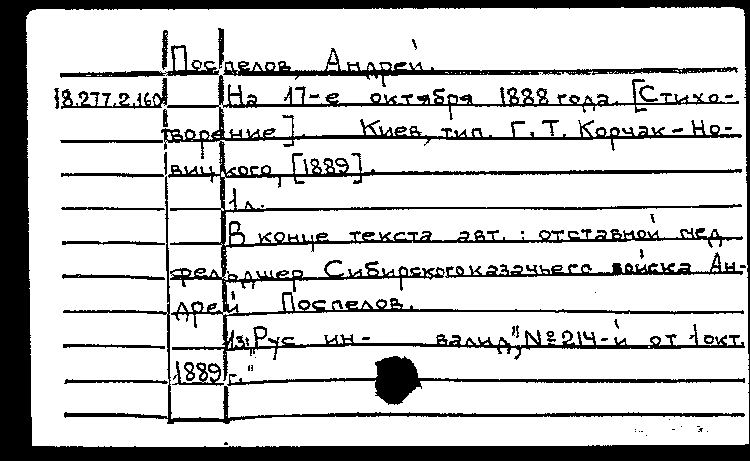 Поспелов, Андрей.
18.277.2.160 На 17-е октября 1888 года. [Стихо-
творение]. Киев, тип. Г. Т. Корчак-Но-
вицкого, [1889].
1 л.
В конце текста авт.: отставной мед.
фельдшер Сибирского казачьего войска Ан-
дрей Поспелов.
Из: "Рус. ин- валид", № 214-й от 1 окт.
1889 г."